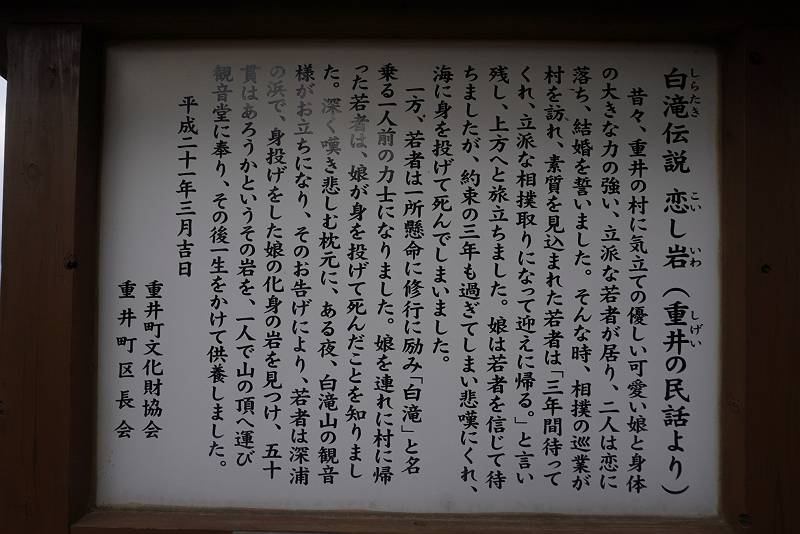 白滝伝説 恋し岩(重井の民話より)
しらたき こい いわ しげい
昔々、重井の村に気立ての優しい可愛い娘と身体
の大きな力の強い、立派な若者が居り、二人は恋に
落ち、結婚を誓いました。そんな時、相撲の巡業が
村を訪れ、素質を見込まれた若者は「三年間待って
くれ、立派な相撲取りになって迎えに帰る。」と言い
残し、上方へと旅立ちました。娘は若者を信じて待
ちましたが、約束の三年も過ぎてしまい悲嘆にくれ、
海に身を投げて死んでしまいました。
一方、若者は一所懸命に修行に励み「白滝」と名
乗る一人前の力士になりました。娘を連れに村に帰
った若者は、娘が身を投げて死んだことを知りまし
た。深く嘆き悲しむ枕元に、ある夜、白滝山の観音
様がお立ちになり、そのお告げにより、若者は深浦
の浜で、身投げをした娘の化身の岩を見つけ、五十
貫はあろうかというその岩を、一人で山の頂へ運び
観音堂に奉り、その後一生をかけて供養しました。
平成二十一年三月吉日
重井町文化財協会
重井町区長会